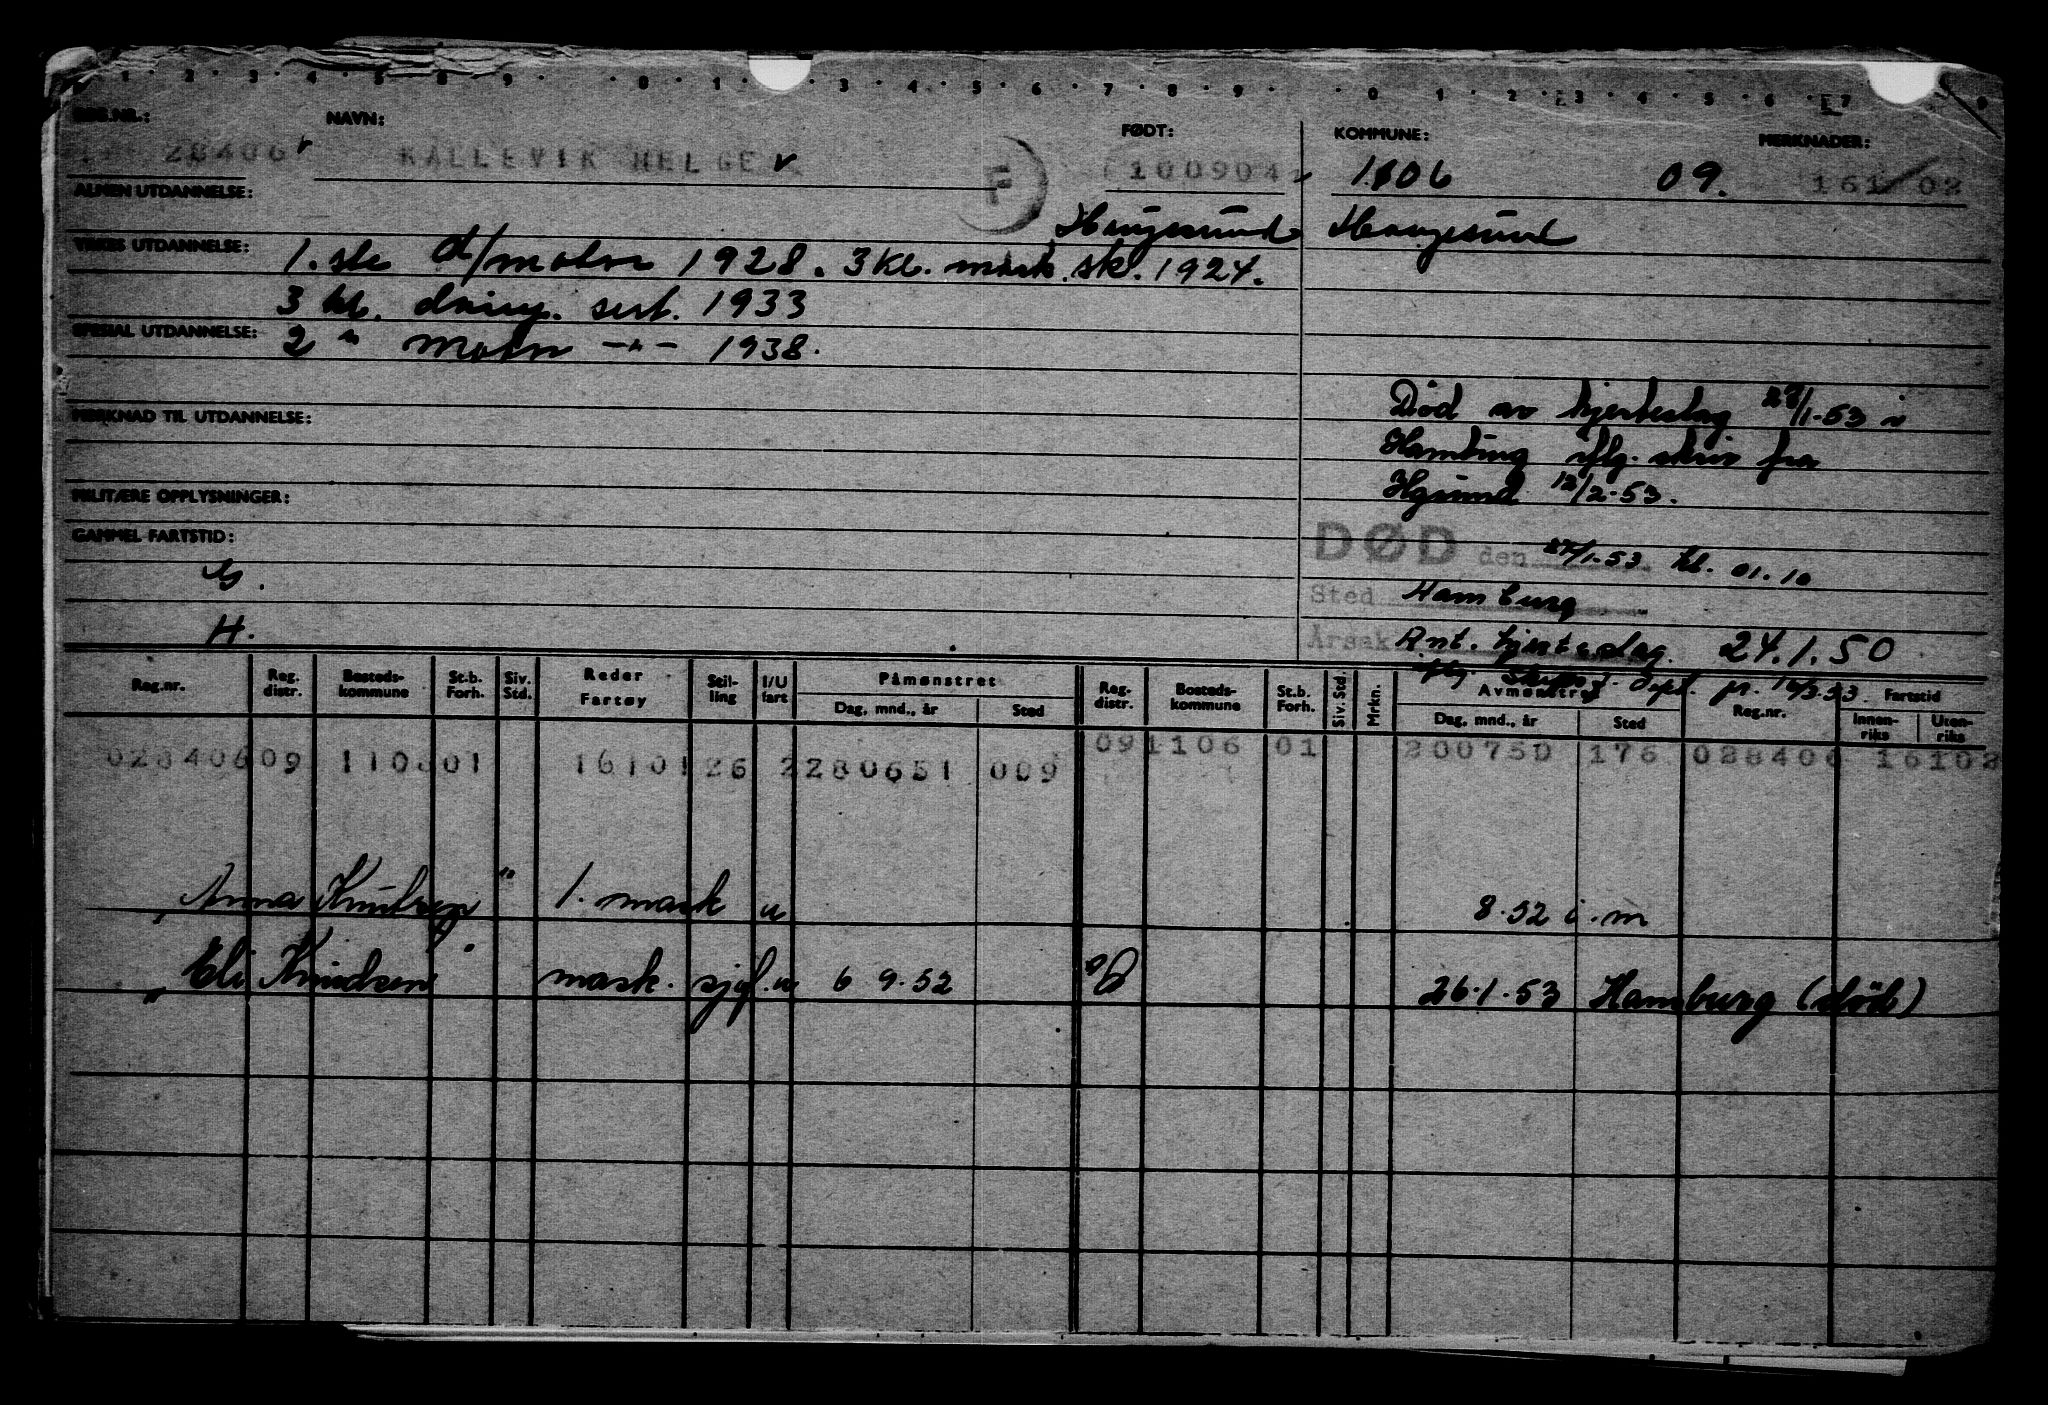 REG.NR.: NAVN: FØDT: KOMMUNE: MERKNADER:
28406 KALLEVIK HELGE F 100904 1106 09. 161/02
ALMEN UTDANNELSE:
Haugesund Haugesund
YRKES UTDANNELSE: 1. ste d/motor 1928. 3 kl. mask. sk. 1924.
3 kl. damp. sert. 1933
SPESIAL UTDANNELSE: 2 " Motor -"- 1938.
MERKNAD TIL UTDANNELSE:
Død av hjerteslag 28/1-53 i
Hamburg iflg. skriv fra
Hgsund 13/2-53.
MILITÆRE OPPLYSNINGER:
GAMMEL FARTSTID:
G.
H.
DØD den 27/1-53 kl. 01.10
Sted Hamburg
Årsak Ant. hjerteslag. 24.1.50
iflg. Skipsf. dept. pr. 16/3-53.
Reg.nr. Reg. distr. Bosteds-kommune St.b. Forh. Siv. Std. Reder Fartøy Stil-ling I/U fart Påmønstret Dag, mnd., år Sted Reg. distr. Bosteds-kommune St.b. Forh. Siv. Std. Mrkn. Avmønstret Dag, mnd., år Sted Reg.nr. Fartstid Innen-riks Uten-riks
028406 09 1106 01 16101 26 2 280651 009 09 1106 01 200750 176 028406 16102
"Anna Knudsen" 1. mask u 8.52 i.m
"Eli Knudsen" mask. sjef. u 6 9.52 26.1.53 Hamburg (død)